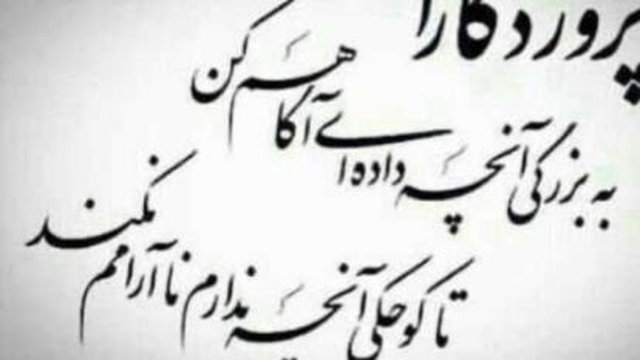 پروردگارا
به بزرگی آنچه داده ای آگاهم کن
تا کوچکی آنچه ندارم نا آرامم نکند